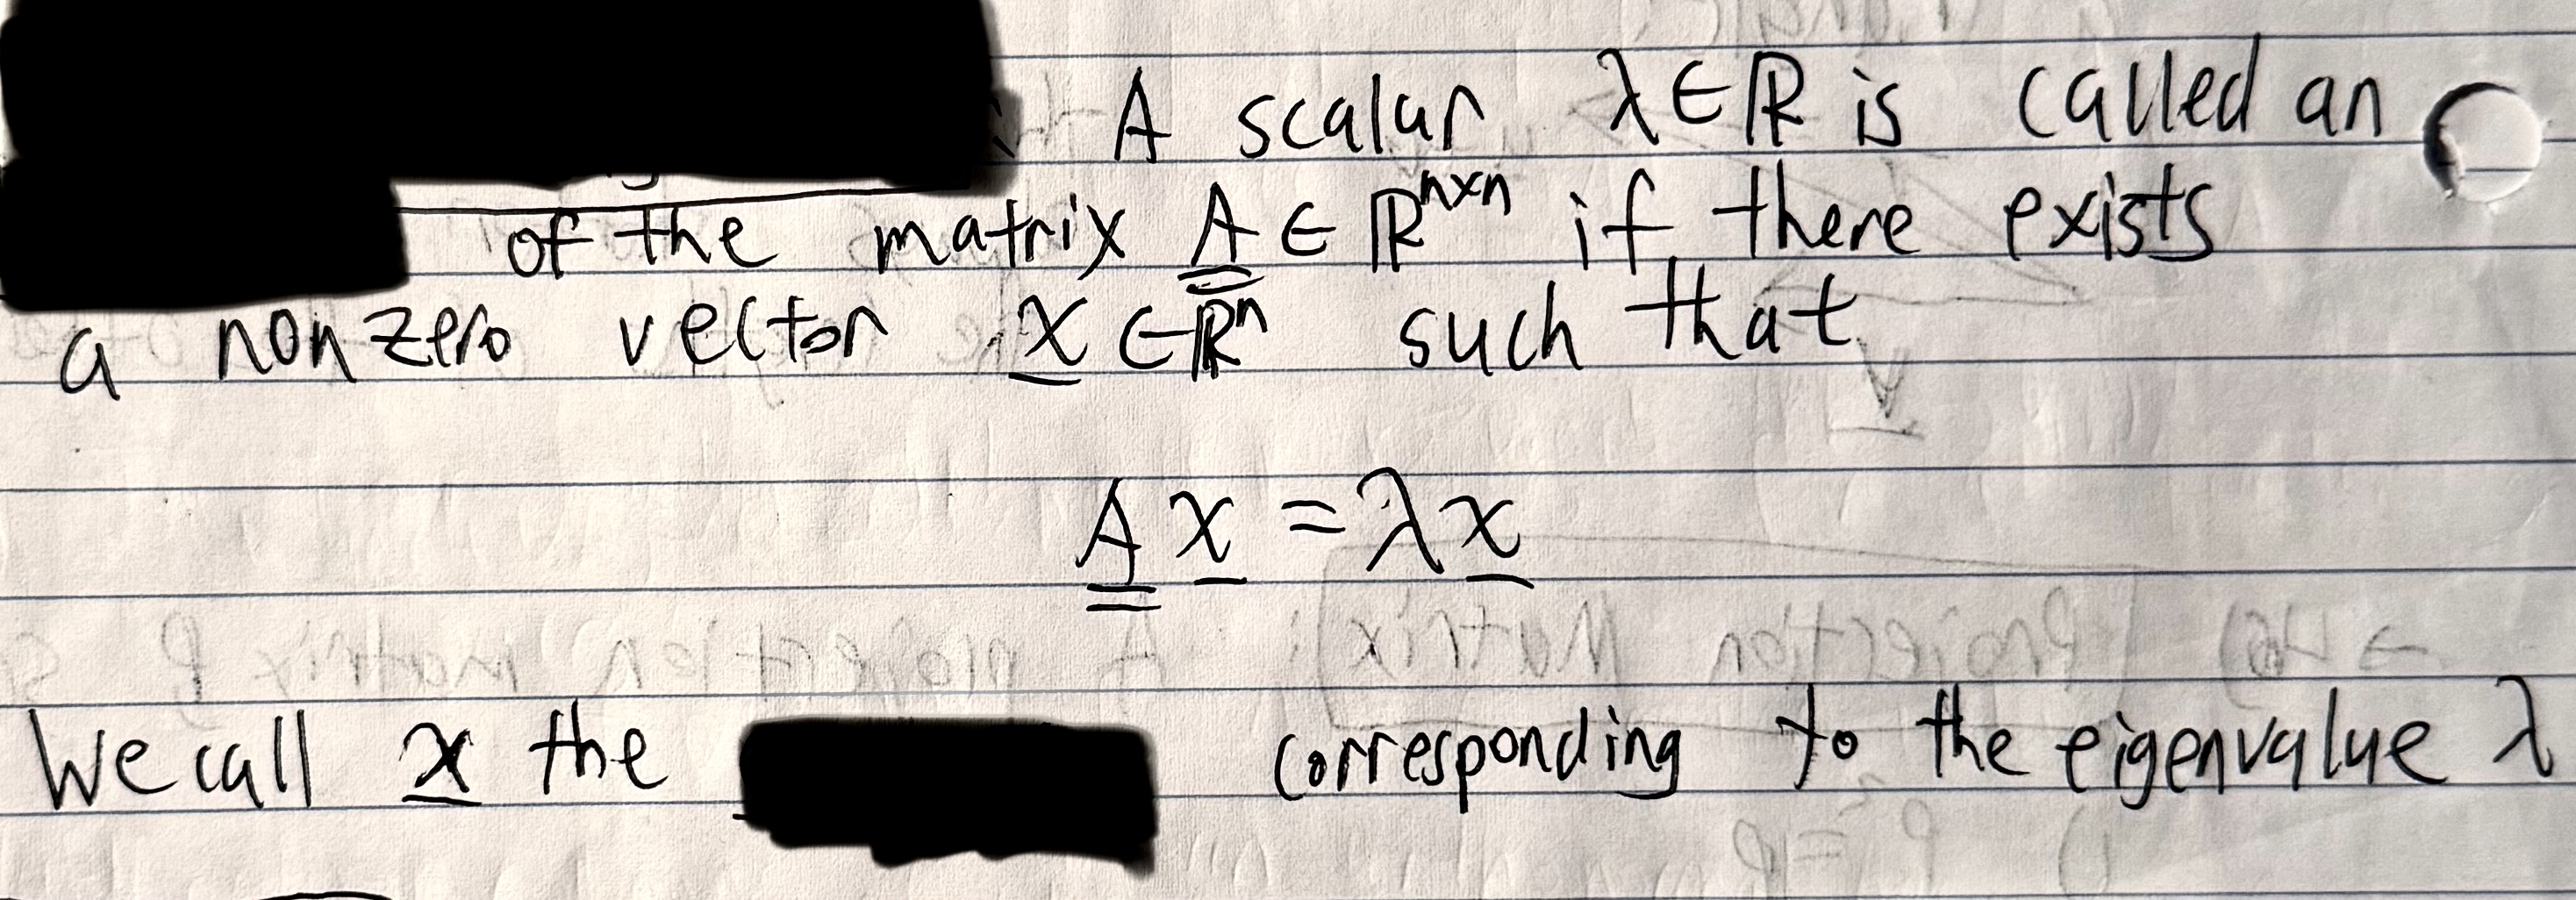 : A scalar λ∈ℝ is called an
of the matrix A̳ ∈ ℝⁿˣⁿ if there exists
a nonzero vector x̲ ∈ ℝⁿ such that
A̳ x̲ = λx̲
We call x̲ the corresponding to the eigenvalue λ